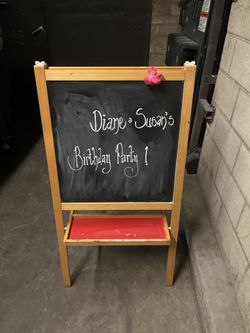 Diane & Susan's
Birthday Party !